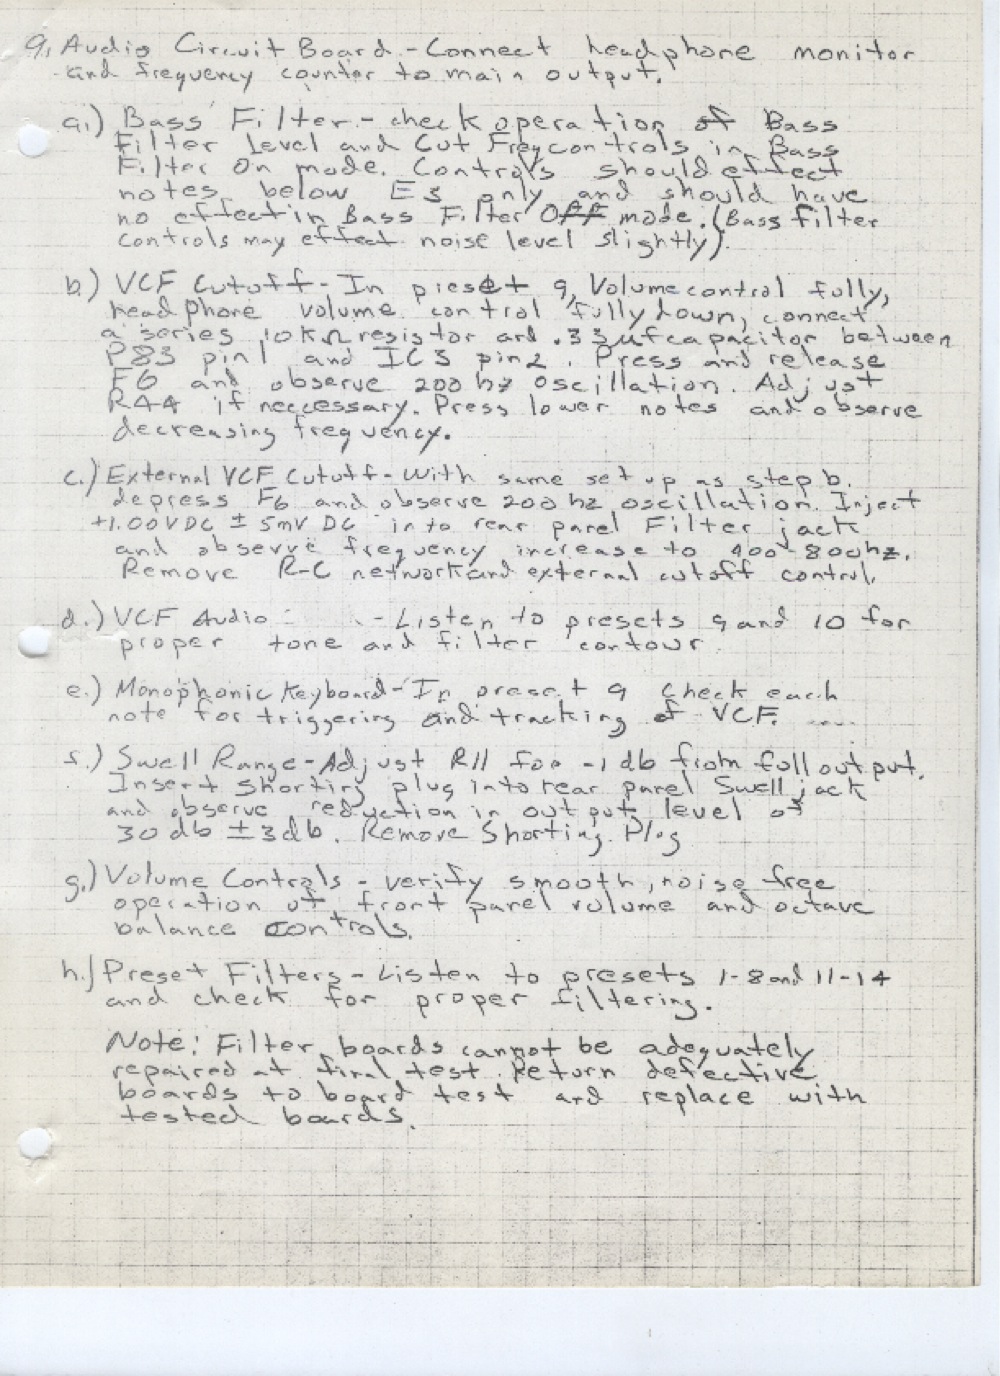 9. Audio Circuit Board - Connect headphone monitor
and frequency counter to main output.
a.) Bass Filter - check operation of Bass
Filter level and Cut Freq controls in Bass
Filter On mode. Controls should effect
notes below E3 only and should have
no effect in Bass Filter Off mode. (Bass filter
controls may effect noise level slightly).
b.) VCF Cutoff - In preset 9, Volume control fully,
headphone volume control fully down, connect
a series 10KΩ resistor and .33uf capacitor between
P83 pin 1 and IC3 pin 2. Press and release
F6 and observe 200 hz oscillation. Adjust
R44 if neccessary. Press lower notes and observe
decreasing frequency.
c.) External VCF Cutoff - With same set up as step b.
depress F6 and observe 200 hz oscillation. Inject
+1.00VDC ± 5mV DC into rear panel Filter jack
and observe frequency increase to 400-800hz.
Remove R-C network and external cutoff control.
d.) VCF Audio - Listen to presets 9 and 10 for
proper tone and filter contour.
e.) Monophonic Keyboard - In preset 9 check each
note for triggering and tracking of VCF.
f.) Swell Range - Adjust R11 for -1db from full output.
Insert shorting plug into rear panel Swell jack
and observe reduction in output level of
30db ± 3db. Remove Shorting Plug
g.) Volume Controls - verify smooth, noise free
operation of front panel volume and octave
balance controls.
h.) Preset Filters - Listen to presets 1-8 and 11-14
and check for proper filtering.
Note: Filter boards cannot be adequately
repaired at final test. Return defective
boards to board test and replace with
tested boards.